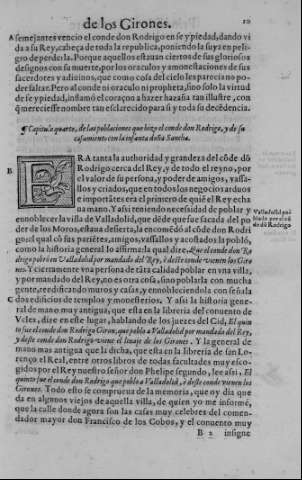 de los Girones. 10
A semejantes vencio el conde don Rodrigo en se y piedad, dando vi
da a su Rey, cabeça de toda la republica, poniendo la suya en peli-
gro de perderla. Porque aquellos estauan ciertos de sus gloriosos
designos con su muerte, por los oraculos y amonestaciones de sus
sacerdotes y adiuinos, que como cosa del cielo les parecia no po-
der faltar. Pero al conde ni oraculo ni propheta, sino solo la virtud
de su fe y piedad, inflamò el coraçon a hazer hazaña tan illustre, con
q̃ merecio esse nombre tan esclarecido para si y toda su decẽdencia.
¶ Capitulo quarto, de las poblaciones que hizo el conde don Rodrigo, y de su
casamiento con la infanta doña Sancha.
B ERA tanta la authoridad y grandeza del cõde dõ
Rodrigo cerca del Rey, y de todo el reyno, por
el valor de su persona, y poder de amigos, vasa-
llos y criados, que en todos los negocios arduos
e importãtes era el primero de quiẽ el Rey echa
ua mano. Y assi teniendo necessidad de poblar y
ennoblecer la villa de Valladolid, que dẽde que fue sacada del po-
der de los Moros, estaua desierta, la encomẽdò al cõde don Rodri
go: el qual cõ sus pariẽtes, amigos, vassallos y acostados la poblò,
como la historia general lo affirma: la qual dize, Que el conde don Ro
drigo pobrò en Valladolid por mandado del Rey, è deste conde vienen los Giro
nes. Y ciertamente vna persona de tãta calidad poblar en vna villa,
y por mandado del Rey, no es otra cosa, sino poblarla con mucha
gente, reedificando muros y casas, y ennobleciendola con señala
C dos edificios de templos y monesterios. Y assi la historia gene-
ral de mano muy antigua, que està en la libreria del conuento de
Vcles, dize en este lugar, hablando de los juezes del Cid, El quin
to fue el conde don Rodrigo Giron, que poblo a Valladolid por mandado del Rey,
y deste conde don Rodrigo viene el linaje de los Girones. Y la general de
mano mas antigua que la dicha, que esta en la libreria de san Lo-
renço el Real, entre otros libros de todas facultades muy esco-
gidos por el Rey nuestro señor don Phelipe segundo, lee assi, El
quinto fue el conde don Rodrigo que poblo a Valladolid, è deste conde vienen los
Girones. Todo esto se comprueua de la memoria, que oy dia que
da en algunos viejos de aquella villa, de quien yo me informé,
que la calle donde agora son las casas muy celebres del comen-
dador mayor don Francisco de los Cobos, y el conuento muy
B 2 insigne
Valladolid po
blada por el cõ
de dõ Rodrigo